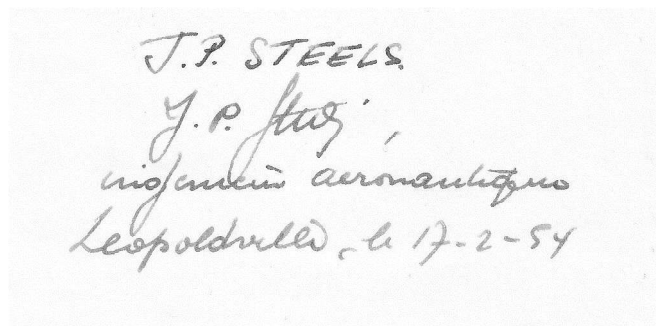 J.P. STEELS.
J.P. Steels,
ingénieur aéronautique
Leopoldville, le 17-2-54